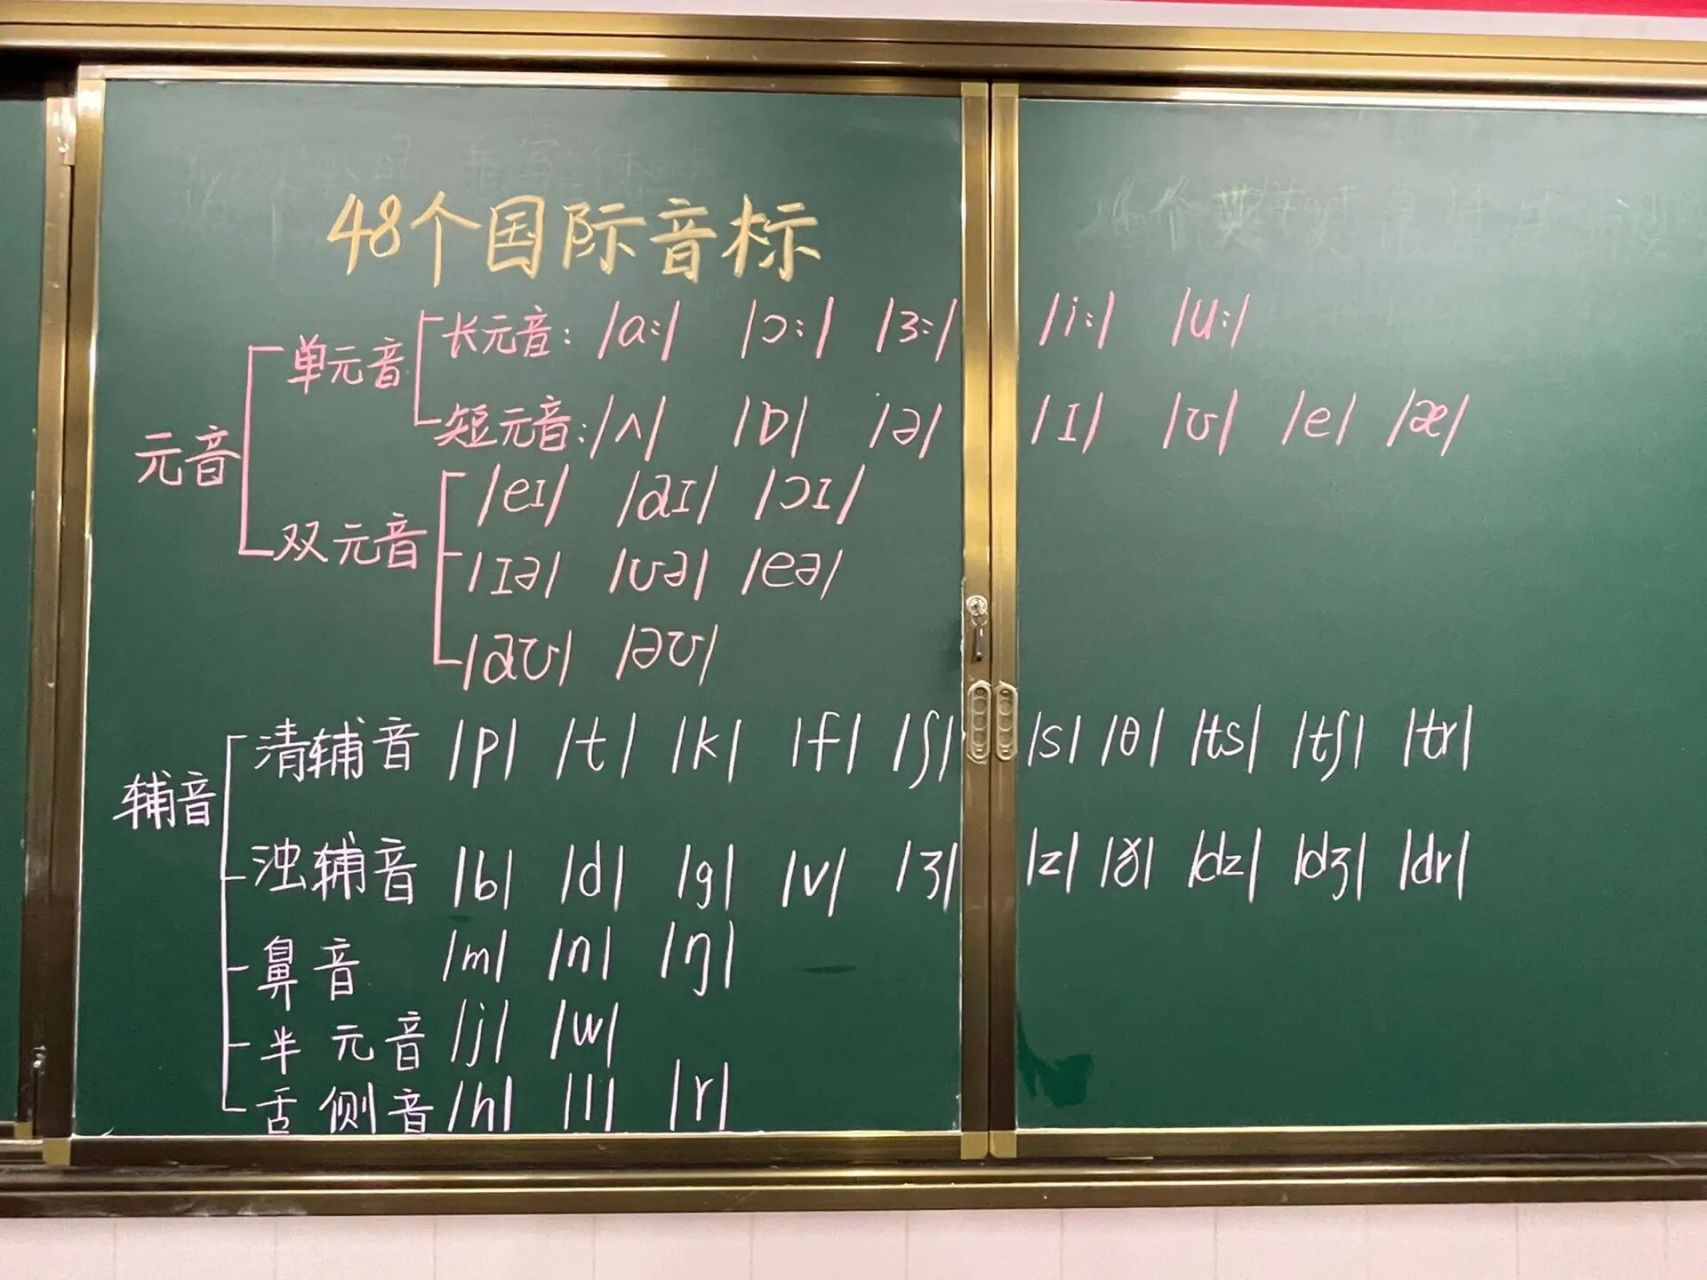 48个国际音标
元音
单元音
长元音: /a:/ /ɔ:/ /3:/ /i:/ /u:/
短元音: /ʌ/ /ɒ/ /ə/ /ɪ/ /ʊ/ /e/ /æ/
双元音
/eɪ/ /aɪ/ /ɔɪ/
/ɪə/ /ʊə/ /eə/
/aʊ/ /əʊ/
辅音
清辅音 /p/ /t/ /k/ /f/ /ʃ/ /s/ /θ/ /ts/ /tʃ/ /tr/
浊辅音 /b/ /d/ /g/ /v/ /ʒ/ /z/ /ð/ /dz/ /dʒ/ /dr/
鼻音 /m/ /n/ /ŋ/
半元音 /j/ /w/
舌侧音 /h/ /l/ /r/